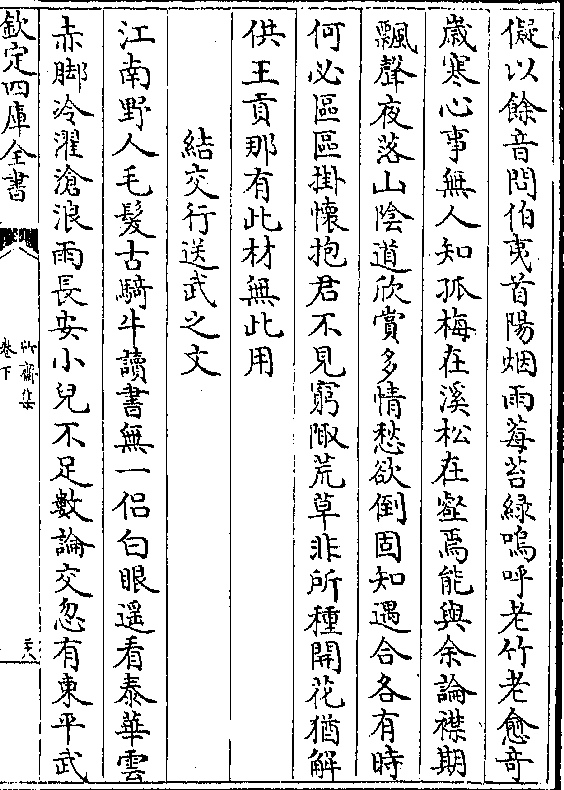 儗以餘音問伯夷首陽烟雨莓苔綠嗚呼老竹老愈竒
歲寒心事無人知孤梅在溪松在壑焉能與余論襟期
飄聲夜落山陰道欣賞多情愁欲倒固知遇合各有時
何必區區掛懷抱君不見窮陬荒草非所種開花猶解
供王貢那有此材無此用
結交行送武之文
江南野人毛髮古騎牛讀書無一侣白眼遥看泰華雲
赤脚冷濯滄浪雨長安小兒不足數論交忽有東平武
欽定四庫全書
竹齋集
卷下
天